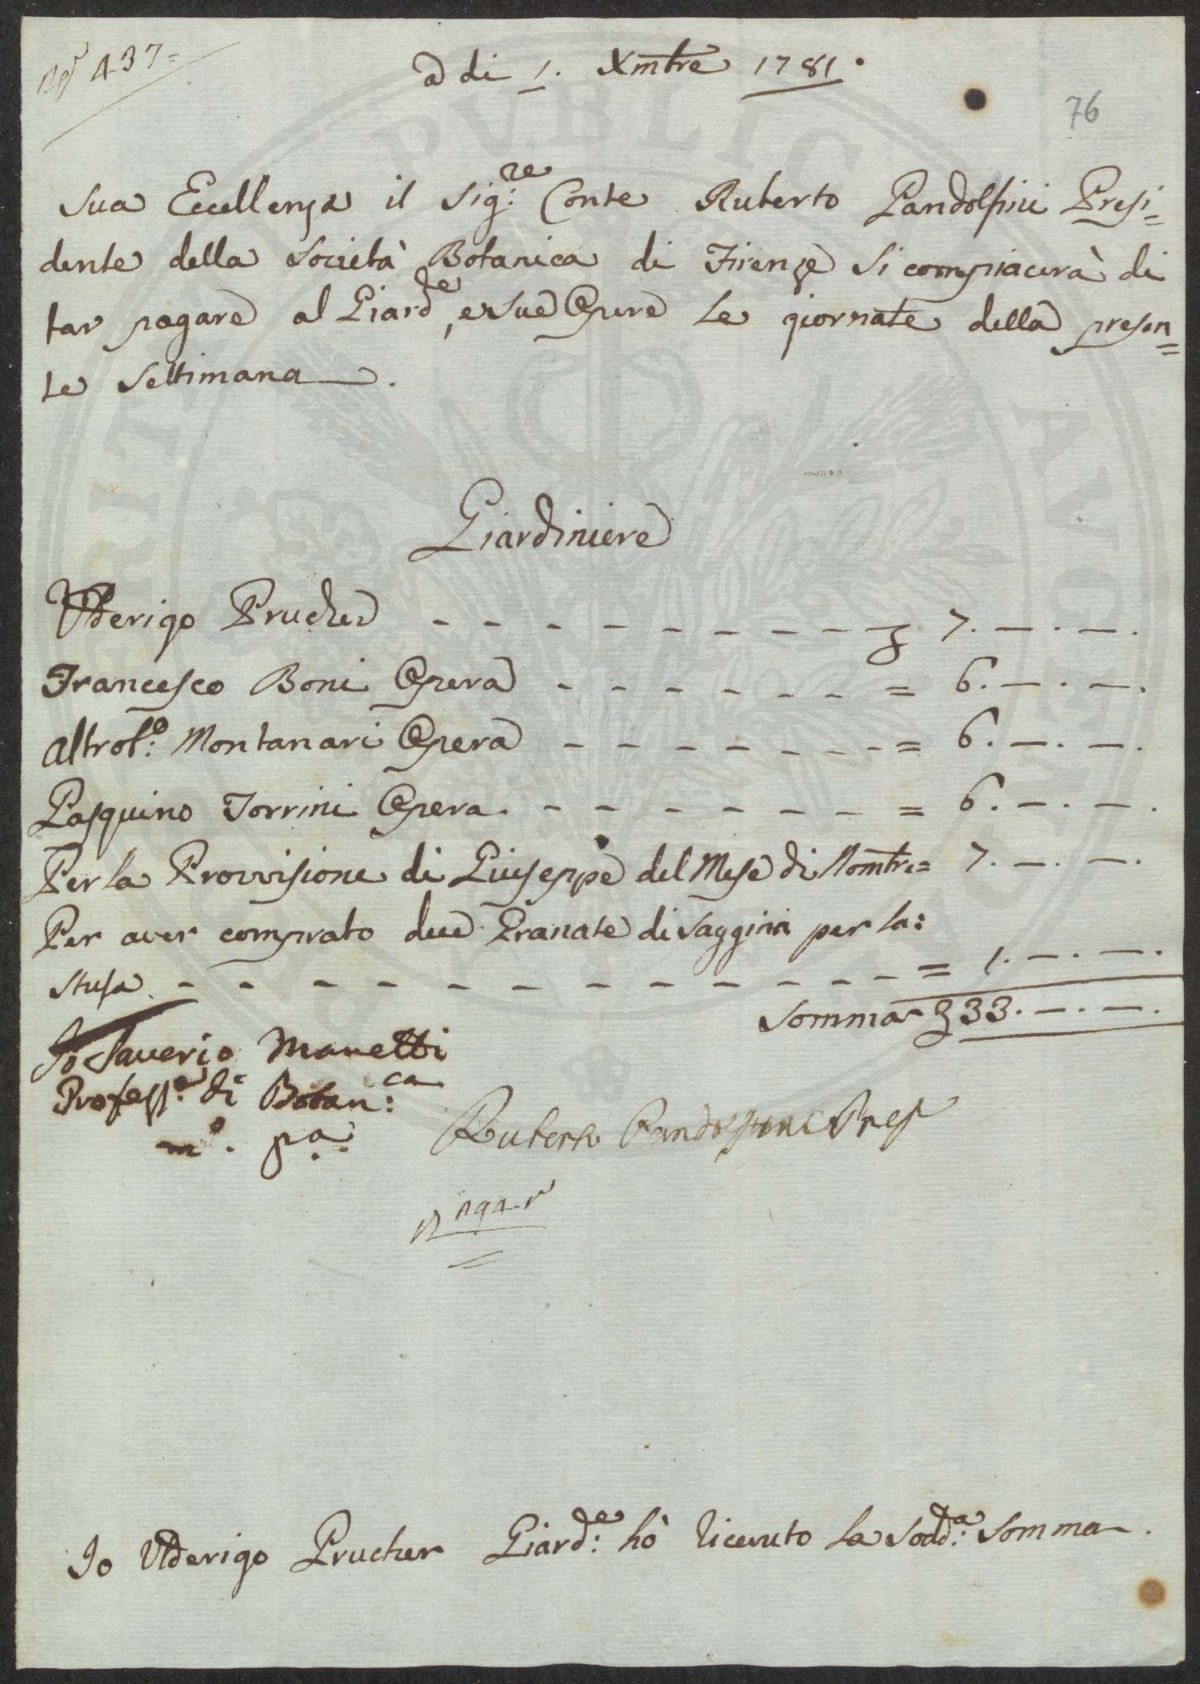 437=
a di 1. Xmbre 1781.
76
Sua Eccellenza il Sig:re Conte Ruberto Pandolfini Presi=
dente della Società Botanica di Firenze si compiacerà di
far pagare al Giarde, e sue Opere le giornate della presen=
te Settimana.
Giardiniere
Ulderigo Prucher - - - - - - - - - - £ 7. — . — .
Francesco Boni Opera - - - - - - - = 6. — . — .
altro t:o Montanari Opera - - - - - - - = 6. — . — .
Pasquino Torrini Opera - - - - - - - = 6. — . — .
Per la Provvisione di Giuseppe del Mese di Nombre = 7. — . — .
Per aver comprato due Granate di saggina per la:
stufa - - - - - - - - - - - - = 1. — . — .
Somma £ 33. — . — .
Io Saverio Manetti
Profess:e di Botan:ca
m:o p:a
Ruberto Pandolfini Pres
pagar
Io Ulderigo Prucher Giard:e hò ricevuto la Sodd:a Somma.
PUBLIC